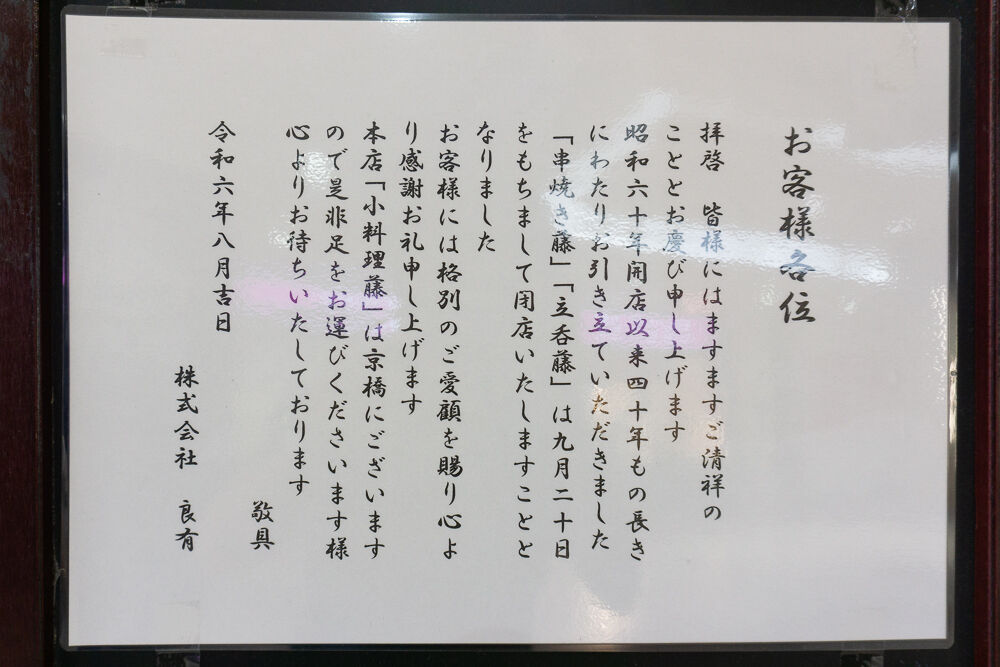 お客様各位
拝啓　皆様にはますますご清祥の
こととお慶び申し上げます
昭和六十年開店以来四十年もの長き
にわたりお引き立ていただきました
「串焼き藤」「立呑藤」は九月二十日
をもちまして閉店いたしますことと
なりました
お客様には格別のご愛顧を賜り心よ
り感謝お礼申し上げます
本店「小料理藤」は京橋にございます
ので是非足をお運びくださいます様
心よりお待ちいたしております
敬具
令和六年八月吉日
株式会社　良有